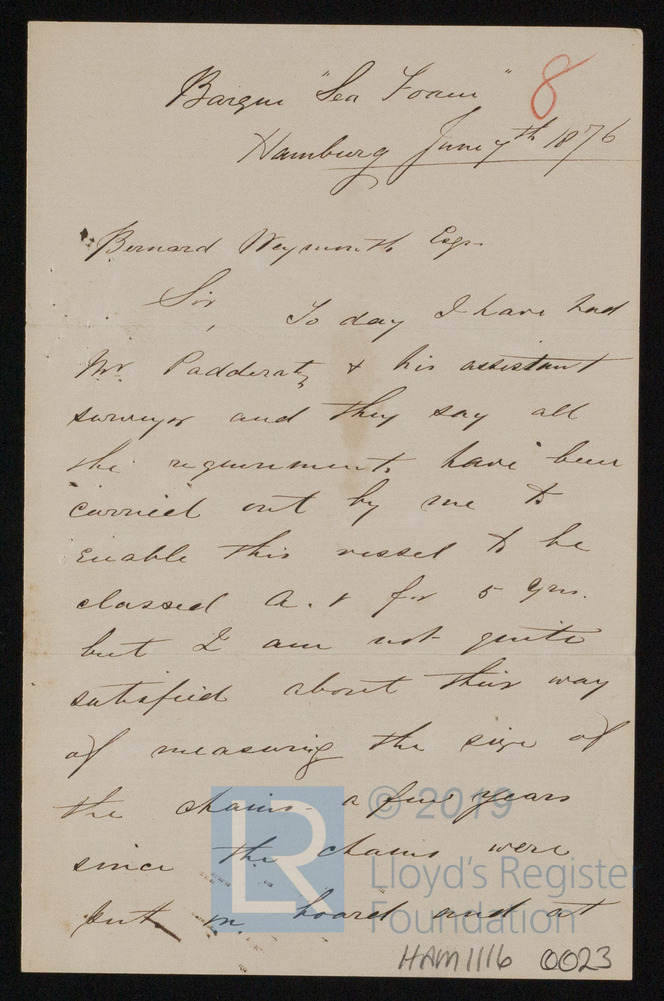 Barque "Sea Foam" 8
Hamburg June 7th 1876
Bernard Weymouth Esqr.
Sir,
To day I have had
Mr. Padderatz & his assistant
surveyor and they say all
the requirements have been
carried out by me to
enable this vessel to be
classed A.1 for 5 yrs.
but I am not quite
satisfied about their way
of measuring the size of
the chains. a few years
since the chains were
put on board and at
LR
© 2019
Lloyd's Register
Foundation
HAM1116 0023